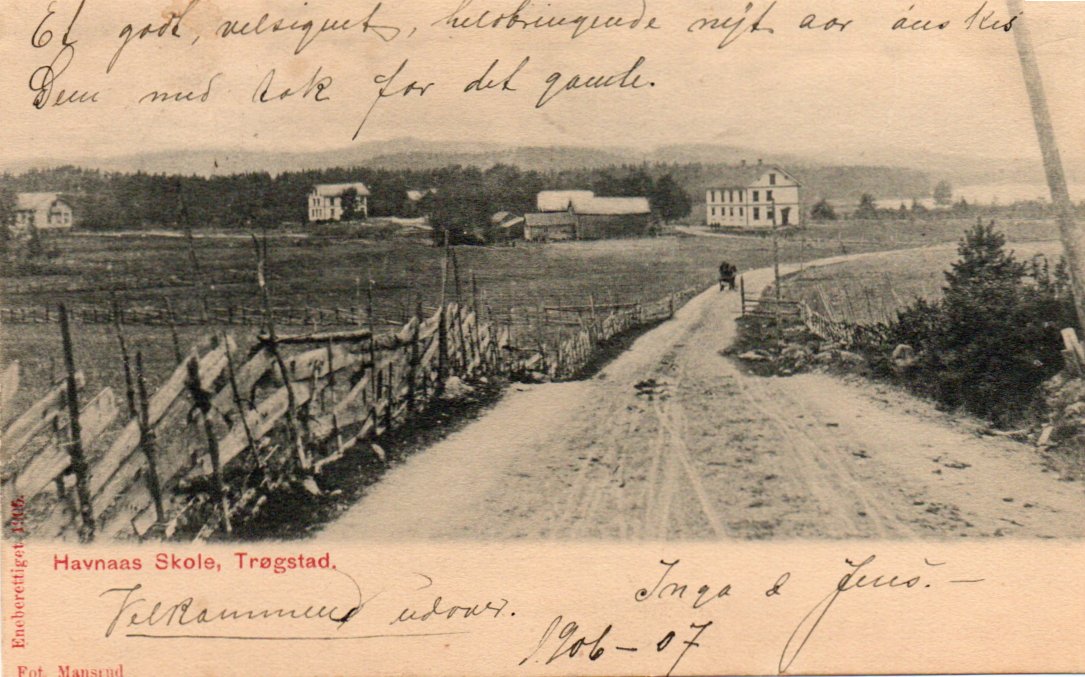 Et godt, velsignet, helsbringende nyt aar øns kes
Dem med tak for det gamle.
Havnaas Skole, Trøgstad.
Velkommend udover.
Inga & Jens. —
1906 – 07
Eneberettiget 1905.
Fot. Mansrud